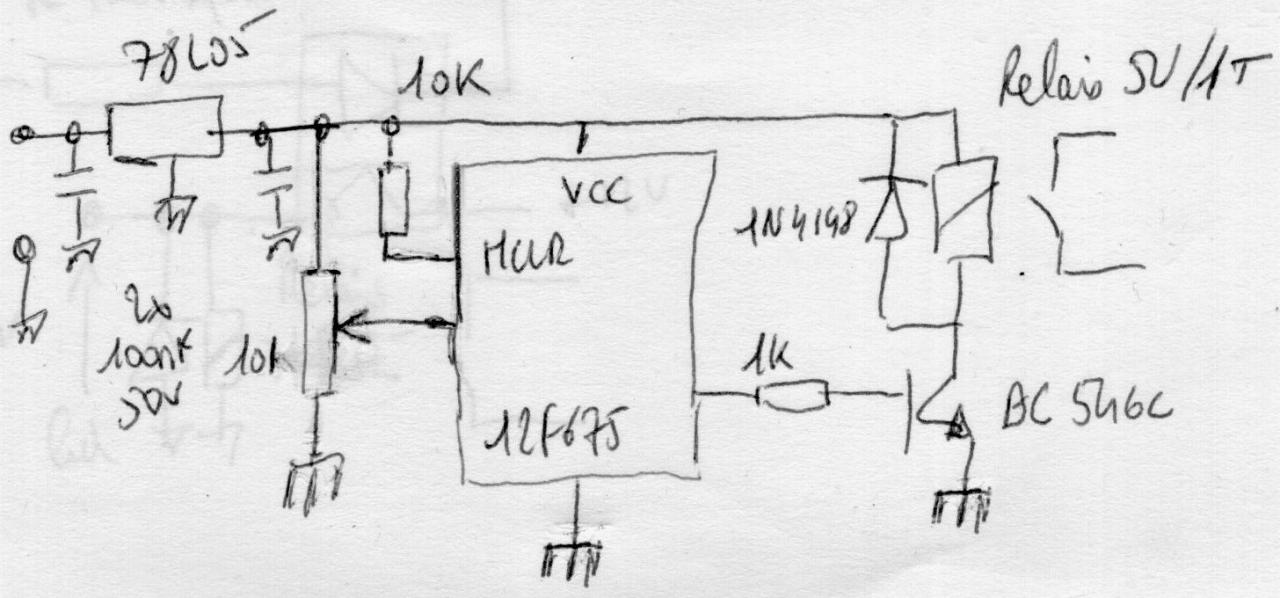 78L05
10K
Relais 5V/1T
VCC
1N4148
MCLR
2x
100nF
50V
10K
1K
12F675
BC 546C